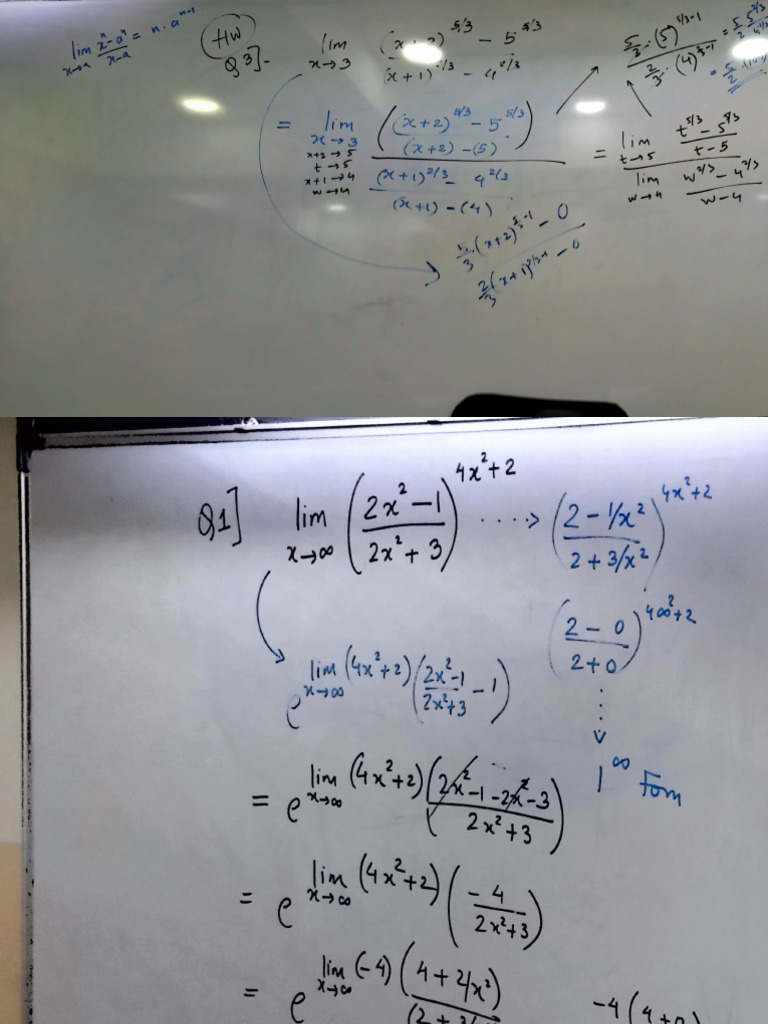 lim x→a xⁿ - aⁿ / x - a = n · aⁿ⁻¹
HW
Q3]- lim x→3 (x+2)^5/3 - 5^5/3 / (x+1)^2/3 - 4^2/3
= lim x→3 ((x+2)^5/3 - 5^5/3 / (x+2) - (5)) / (x+1)^2/3 - 4^2/3 / (x+1) - (4)
x+2→5
t→5
x+1→4
w→4
= lim t→5 t^5/3 - 5^5/3 / t - 5 / lim w→4 w^2/3 - 4^2/3 / w - 4
5/3 · (5)^5/3-1 / 2/3 · (4)^2/3-1
5/3 · (x+2)^5/3-1 - 0
2/3 (x+1)^2/3-1 - 0
Q1] lim x→∞ (2x² - 1 / 2x² + 3)^4x²+2 ····> (2 - 1/x² / 2 + 3/x²)^4x²+2
(2 - 0 / 2 + 0)^4∞²+2
e^lim x→∞ (4x²+2) (2x²-1 / 2x²+3 - 1)
1^∞ Fom
= e^lim x→∞ (4x²+2) (2x²-1-2x²-3 / 2x²+3)
= e^lim x→∞ (4x²+2) (-4 / 2x²+3)
= e^lim x→∞ (-4) (4+2/x²)